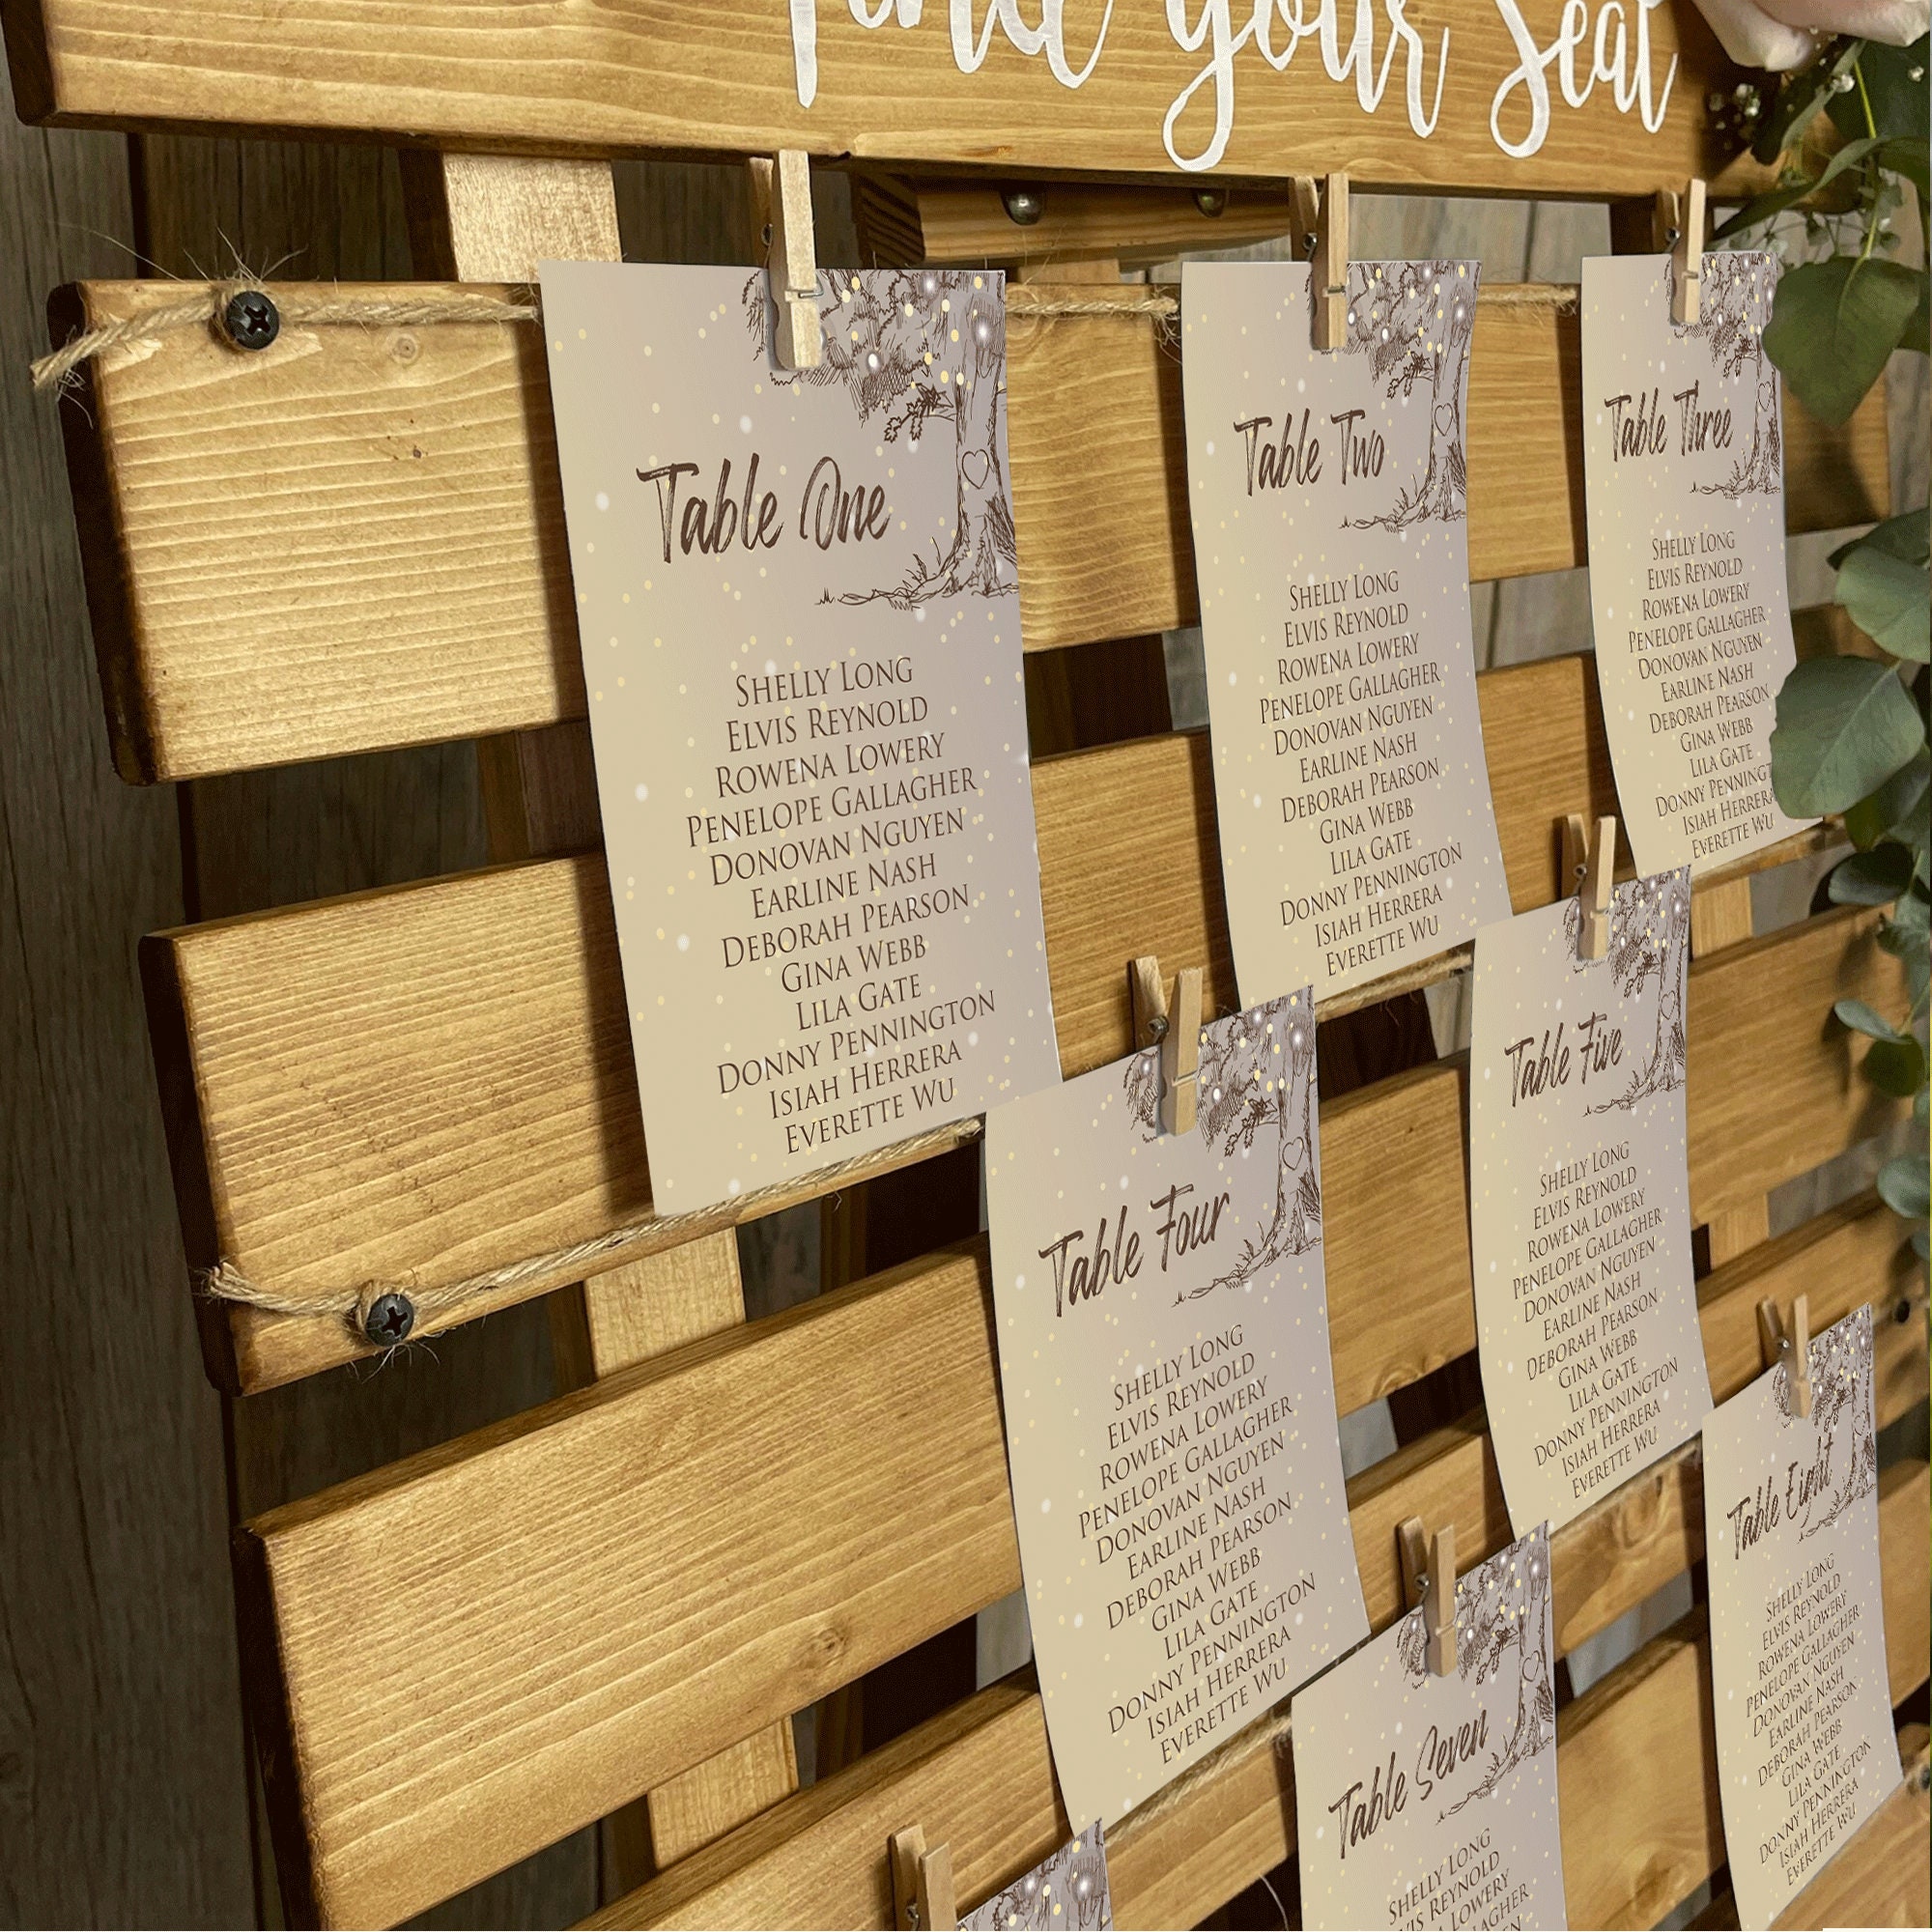 Find your Seat
Table One
SHELLY LONG
ELVIS REYNOLD
ROWENA LOWERY
PENELOPE GALLAGHER
DONOVAN NGUYEN
EARLINE NASH
DEBORAH PEARSON
GINA WEBB
LILA GATE
DONNY PENNINGTON
ISIAH HERRERA
EVERETTE WU
Table Two
SHELLY LONG
ELVIS REYNOLD
ROWENA LOWERY
PENELOPE GALLAGHER
DONOVAN NGUYEN
EARLINE NASH
DEBORAH PEARSON
GINA WEBB
LILA GATE
DONNY PENNINGTON
ISIAH HERRERA
EVERETTE WU
Table Three
SHELLY LONG
ELVIS REYNOLD
ROWENA LOWERY
PENELOPE GALLAGHER
DONOVAN NGUYEN
EARLINE NASH
DEBORAH PEARSON
GINA WEBB
LILA GATE
DONNY PENNINGT
ISIAH HERRERA
EVERETTE WU
Table Four
SHELLY LONG
ELVIS REYNOLD
ROWENA LOWERY
PENELOPE GALLAGHER
DONOVAN NGUYEN
EARLINE NASH
DEBORAH PEARSON
GINA WEBB
LILA GATE
DONNY PENNINGTON
ISIAH HERRERA
EVERETTE WU
Table Five
SHELLY LONG
ELVIS REYNOLD
ROWENA LOWERY
PENELOPE GALLAGHER
DONOVAN NGUYEN
EARLINE NASH
DEBORAH PEARSON
GINA WEBB
LILA GATE
DONNY PENNINGTON
ISIAH HERRERA
EVERETTE WU
Table Seven
SHELLY LONG
ELVIS REYNOLD
LOWERY
GALLAGHER
Table Eight
SHELLY LONG
ELVIS REYNOLD
ROWENA LOWERY
PENELOPE GALLAGHER
DONOVAN NGUYEN
EARLINE NASH
DEBORAH PEARSON
GINA WEBB
LILA GATE
DONNY PENNINGTON
ISIAH HERRERA
EVERETTE WU